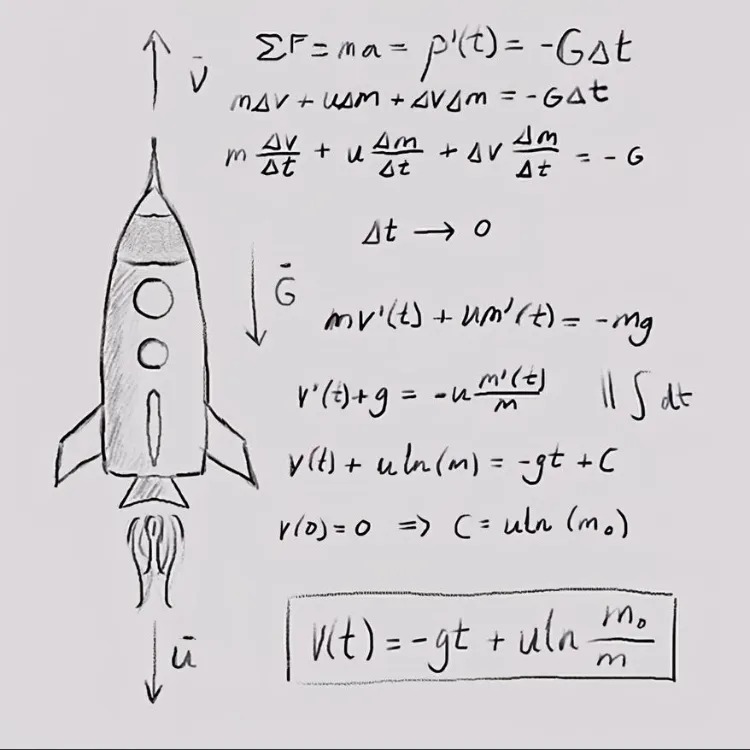 V̄
ΣF = ma = p'(t) = -GΔt
mΔv + uΔm + ΔvΔm = -GΔt
m Δv/Δt + u Δm/Δt + Δv Δm/Δt = -G
Δt → 0
Ḡ
mv'(t) + um'(t) = -mg
v'(t)+g = -u m'(t)/m || ∫ dt
v(t) + u ln(m) = -gt + C
v(0)=0 => C = u ln (m₀)
v(t) = -gt + u ln m₀/m
ū